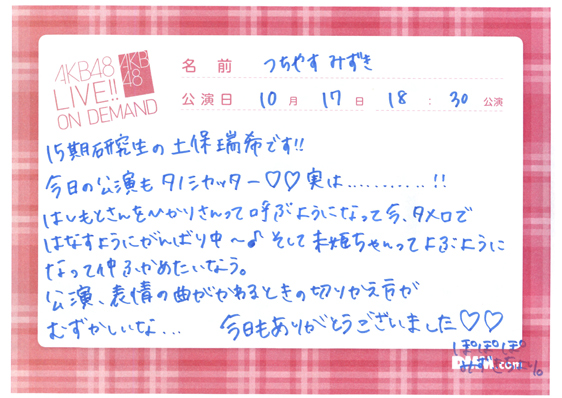 AKB48
LIVE!!
ON DEMAND
AKB
48
名 前 つちやす みずき
公演日 10 月 17 日 18 : 30 公演
15期研究生の土保瑞希です!!
今日の公演もタノシカッター♡♡実は...........!!
はしもとさんをひかりさんって呼ぶようになって今、タメ口で
はなすようにがんばり中〜♪ そして未姫ちゃんってよぶように
なって仲ふかめたいなう。
公演、表情の曲がかわるときの切りかえ方が
むずかしいな... 今日もありがとうございました♡♡
ぽぽぽぽ
みずきちゃん。
.com